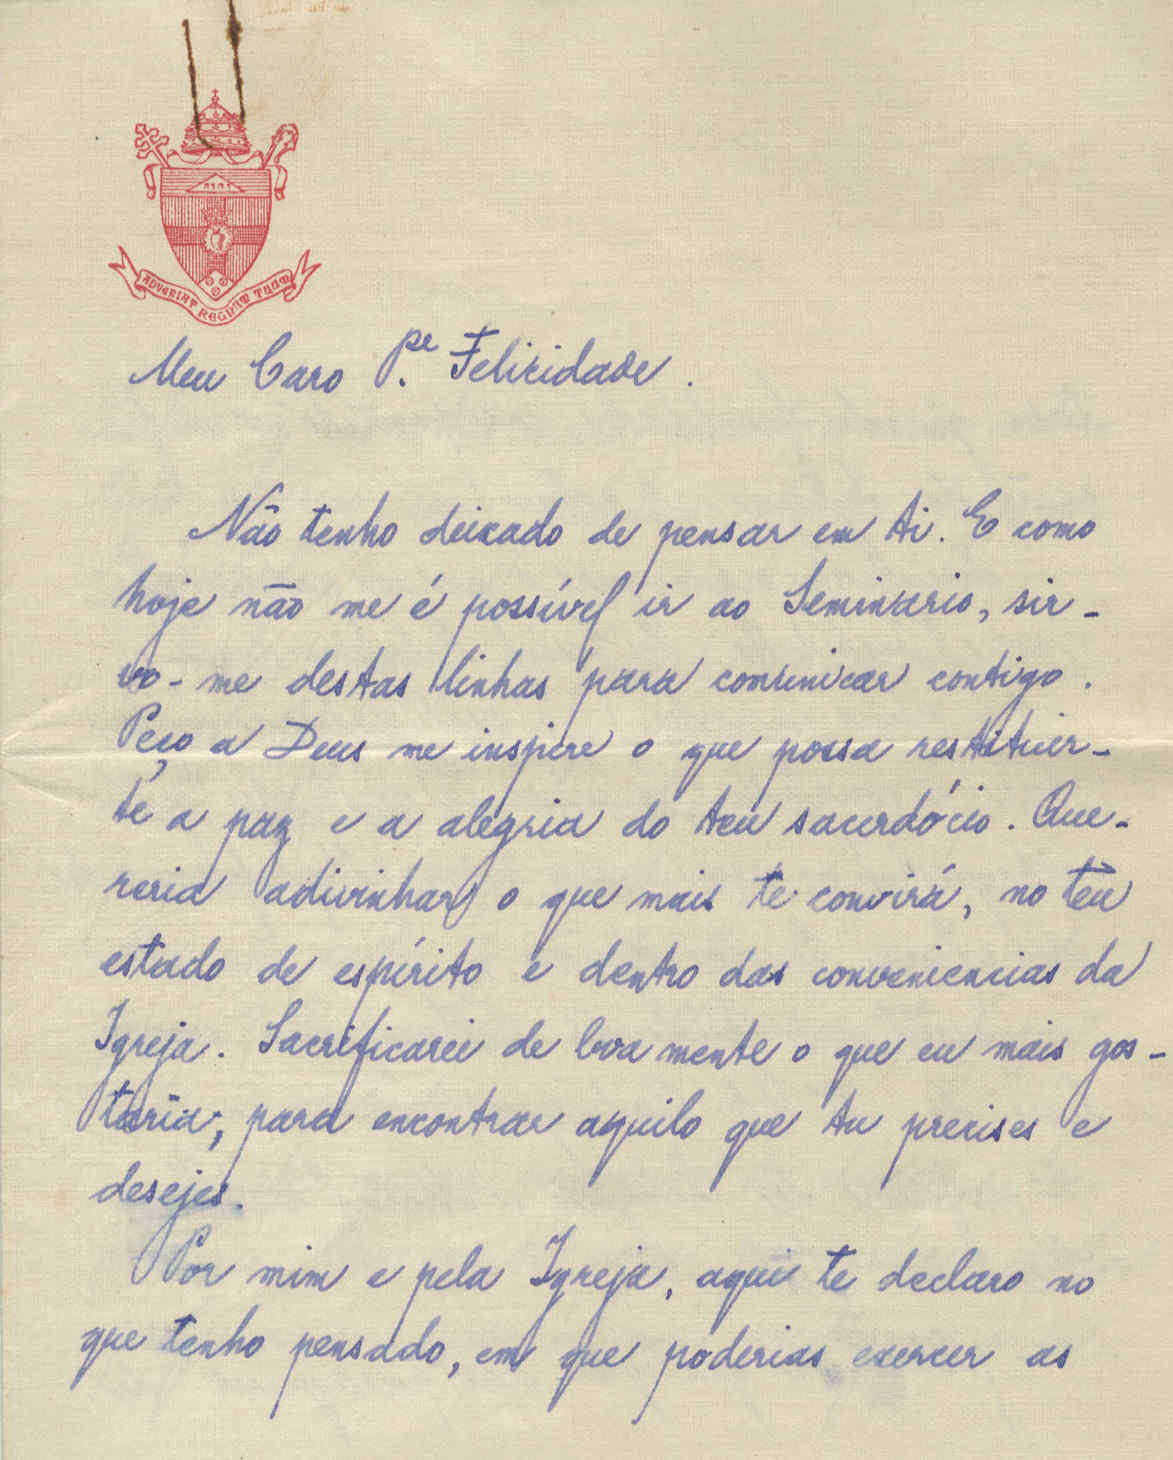 ADVENIAT REGNUM TUUM
Meu Caro P.e Felicidade.
Não tenho deixado de pensar em ti. E como
hoje não me é possível ir ao Seminário, sir-
vo-me destas linhas para comunicar contigo.
Peço a Deus me inspire o que possa restituir-
te a paz e a alegria do teu sacerdócio. Que-
reria adivinhar o que mais te convirá, no teu
estado de espírito e dentro das conveniencias da
Igreja. Sacrificarei de boa mente o que eu mais gos-
taria, para encontrar aquilo que tu precises e
desejes.
Por mim e pela Igreja, aqui te declaro no
que tenho pensado, em que poderias exercer as